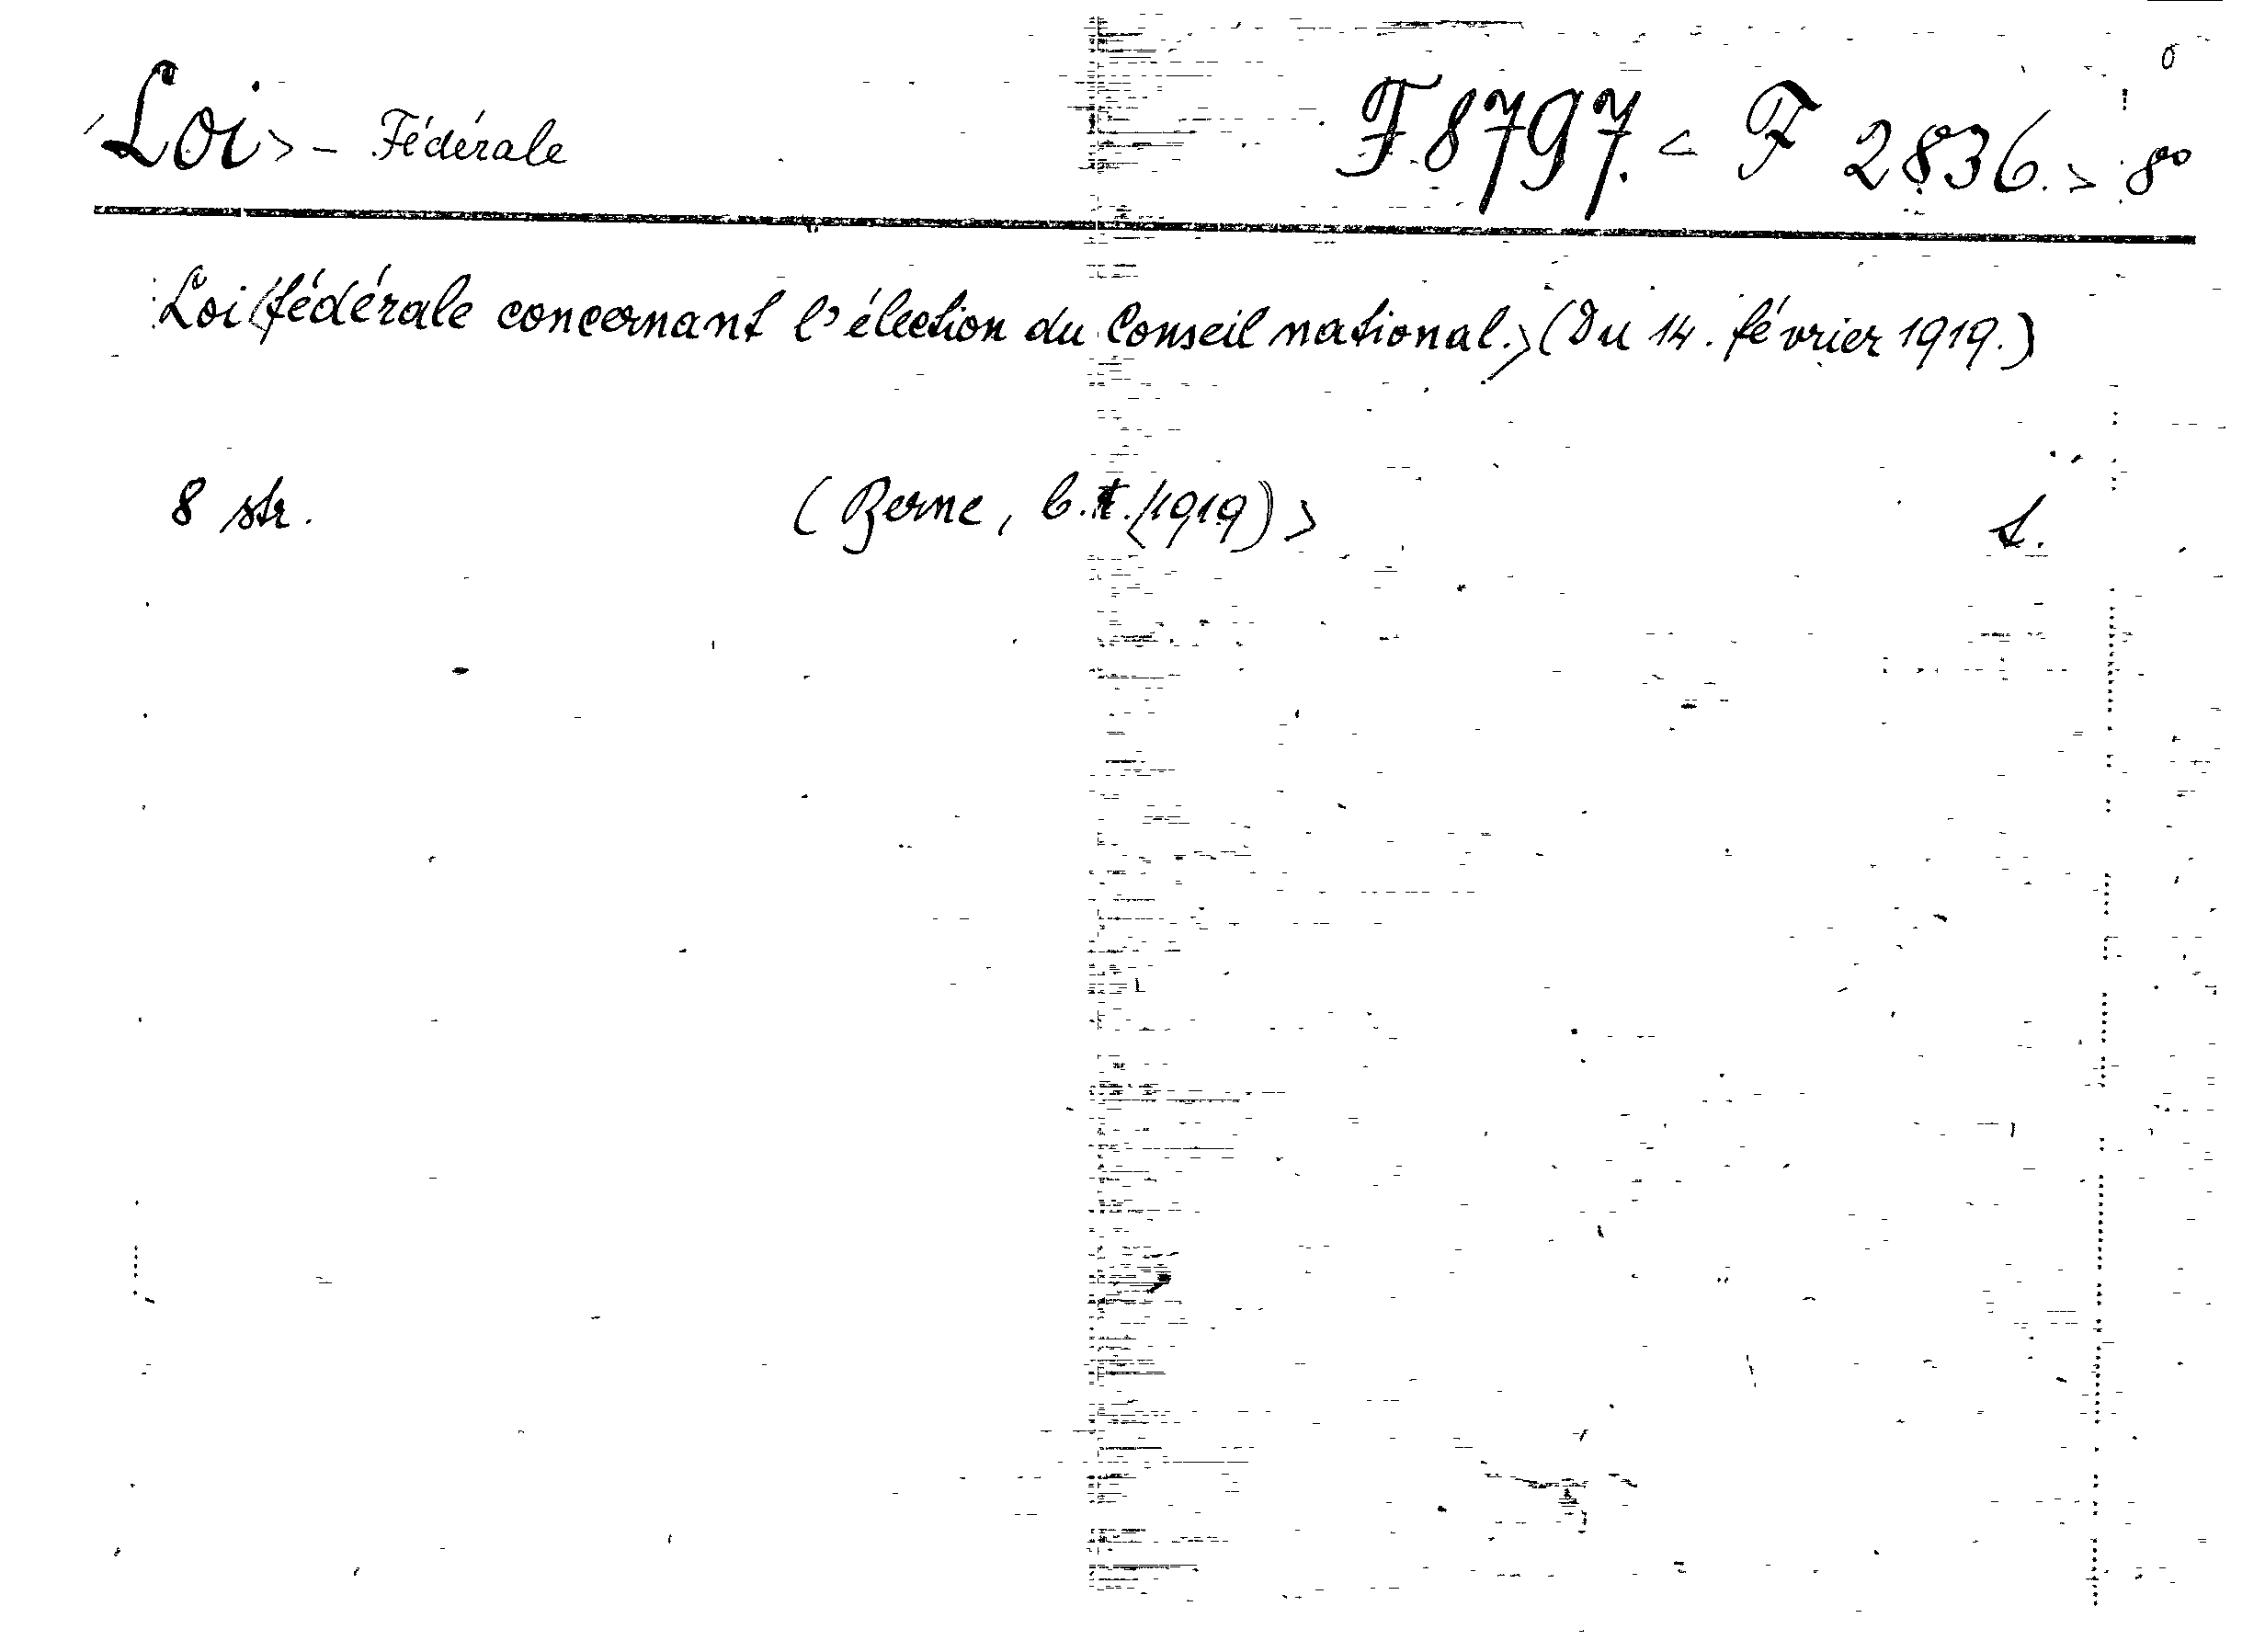 <Loi> - Fédérale F 8797. < F 2836. > 8°
Loi (fédérale concernant l'élection du Conseil national.> (Du 14. février 1919.)
8 str. (Berne, b.t. (1919) >